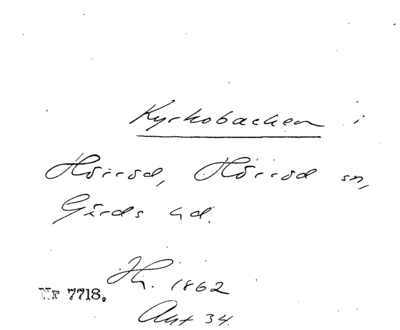 Kyrkobacken i
Hörröd, Hörröd sn,
Gärds hd.
Hk. 1862
Nr 7718.
Akt 34.